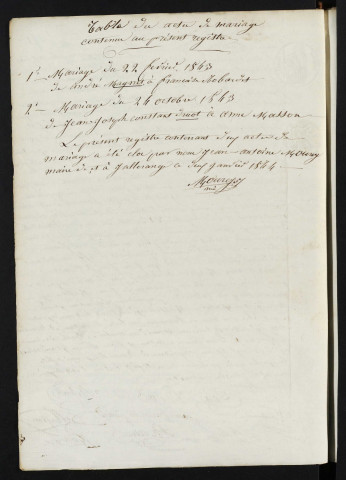 Table des actes de mariage
contenu au présent registre
1° Mariage du 22 février 1843
de andré à françoise
2° Mariage du 24 octobre 1843
de Jean Joseph constant à anne Masson
Le présent registre contenant deux actes de
mariage a été clos par nous Jean antoine Mourey
maire de et à Jallerange le deux janvier 1844
Mourey